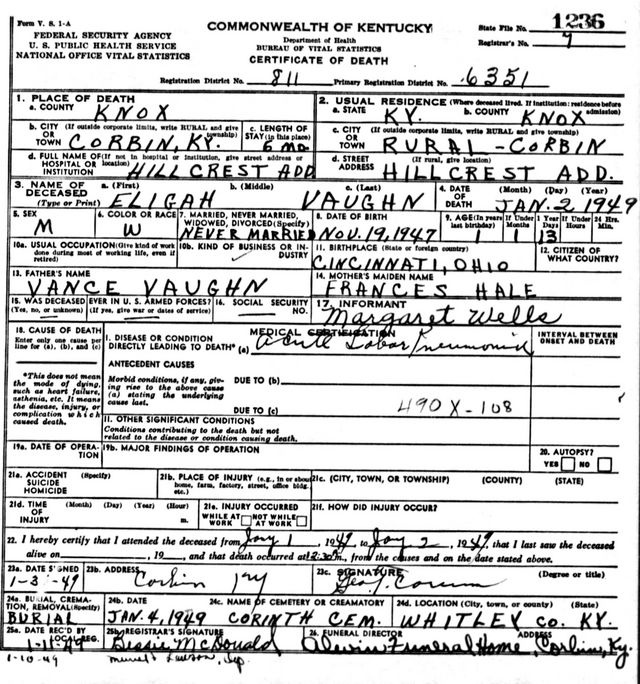 Form V. S. 1-A
FEDERAL SECURITY AGENCY
U. S. PUBLIC HEALTH SERVICE
NATIONAL OFFICE VITAL STATISTICS
COMMONWEALTH OF KENTUCKY
Department of Health
BUREAU OF VITAL STATISTICS
CERTIFICATE OF DEATH
State File No. 1236
Registrar's No. 7
Registration District No. 811 Primary Registration District No. 6351
1. PLACE OF DEATH
a. COUNTY KNOX
2. USUAL RESIDENCE (Where deceased lived. If institution: residence before admission)
a. STATE KY. b. COUNTY KNOX
b. CITY (If outside corporate limits, write RURAL and give township) OR TOWN CORBIN, KY.
c. LENGTH OF STAY (in this place) 6 mo
c. CITY (If outside corporate limits, write RURAL and give township) OR TOWN RURAL - CORBIN
d. FULL NAME OF (If not in hospital or institution, give street address or location) HOSPITAL OR INSTITUTION HILLCREST ADD
d. STREET ADDRESS (If rural, give location) HILLCREST ADD.
3. NAME OF DECEASED (Type or Print) a. (First) b. (Middle) c. (Last)
ELIGAH VAUGHN
4. DATE OF DEATH (Month) (Day) (Year)
JAN. 2 1949
5. SEX M
6. COLOR OR RACE W
7. MARRIED, NEVER MARRIED, WIDOWED, DIVORCED (Specify) NEVER MARRIED
8. DATE OF BIRTH NOV. 19, 1947
9. AGE (In years last birthday) 1 If Under 1 Year Months 1 Days 13 If Under 24 Hrs. Hours Min.
10a. USUAL OCCUPATION (Give kind of work done during most of working life, even if retired)
10b. KIND OF BUSINESS OR INDUSTRY
11. BIRTHPLACE (State or foreign country)
CINCINNATI, OHIO
12. CITIZEN OF WHAT COUNTRY?
13. FATHER'S NAME
VANCE VAUGHN
14. MOTHER'S MAIDEN NAME
FRANCES HALE
15. WAS DECEASED EVER IN U. S. ARMED FORCES?
(Yes, no, or unknown) (If yes, give war or dates of service)
16. SOCIAL SECURITY NO.
17. INFORMANT
Margaret Wells
18. CAUSE OF DEATH
Enter only one cause per line for (a), (b), and (c)
*This does not mean the mode of dying, such as heart failure, asthenia, etc. It means the disease, injury, or complication which caused death.
MEDICAL CERTIFICATION
I. DISEASE OR CONDITION DIRECTLY LEADING TO DEATH* (a) Acute Lobar Pneumonia
ANTECEDENT CAUSES
Morbid conditions, if any, giving rise to the above cause (a) stating the underlying cause last.
DUE TO (b)
DUE TO (c)
490X-108
II. OTHER SIGNIFICANT CONDITIONS
Conditions contributing to the death but not related to the disease or condition causing death.
INTERVAL BETWEEN ONSET AND DEATH
19a. DATE OF OPERATION
19b. MAJOR FINDINGS OF OPERATION
20. AUTOPSY?
YES NO
21a. ACCIDENT SUICIDE HOMICIDE (Specify)
21b. PLACE OF INJURY (e.g., in or about home, farm, factory, street, office bldg. etc.)
21c. (CITY, TOWN, OR TOWNSHIP) (COUNTY) (STATE)
21d. TIME OF INJURY (Month) (Day) (Year) (Hour) m.
21e. INJURY OCCURRED
WHILE AT WORK NOT WHILE AT WORK
21f. HOW DID INJURY OCCUR?
22. I hereby certify that I attended the deceased from Jay 1, 1949 to Jay 2, 1949, that I last saw the deceased
alive on , 19 , and that death occurred at 2:30 m., from the causes and on the date stated above.
23a. DATE SIGNED 1-3-49
23b. ADDRESS Corbin Ky
23c. SIGNATURE (Degree or title)
24a. BURIAL, CREMATION, REMOVAL (Specify) BURIAL
24b. DATE JAN. 4, 1949
24c. NAME OF CEMETERY OR CREAMATORY CORINTH CEM.
24d. LOCATION (City, town, or county) (State) WHITLEY CO. KY.
25a. DATE REC'D BY LOCAL REG. 1-11-49
25b. REGISTRAR'S SIGNATURE Bessie McDonald
26. FUNERAL DIRECTOR ADDRESS
Funeral Home, Corbin, Ky.
1-10-49